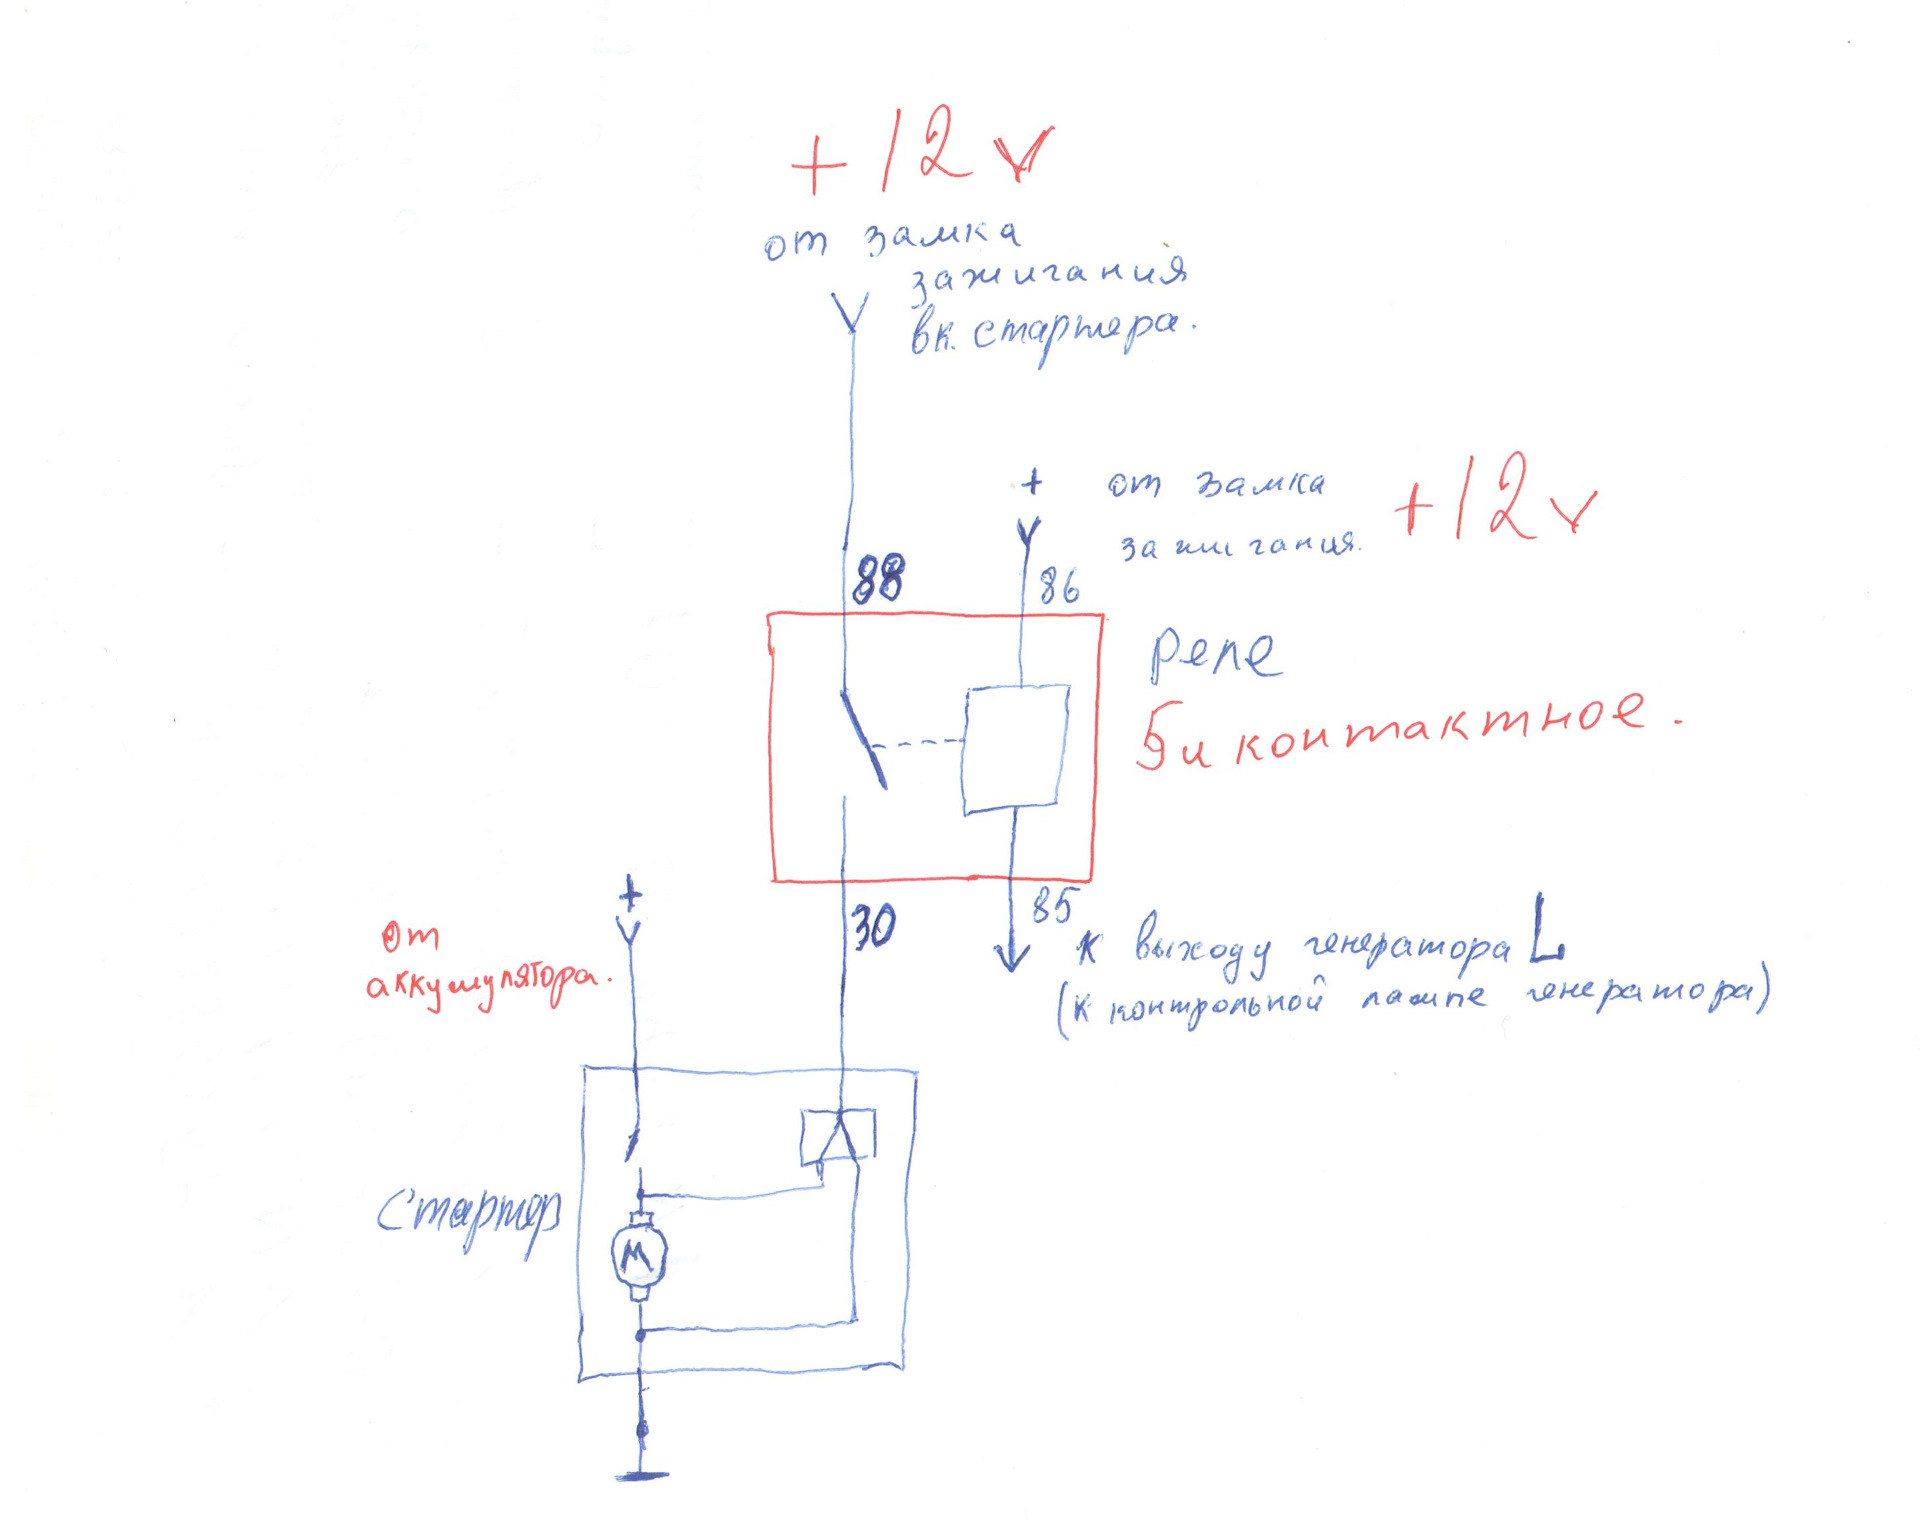 +12v
от замка
зажигания
вк. стартера.
+ от замка +12v
зажигания.
88
86
Реле
5и контактное.
+
От
аккумулятора.
30
85
к выходу генератора L
(к контрольной лампе генератора)
Стартер
M